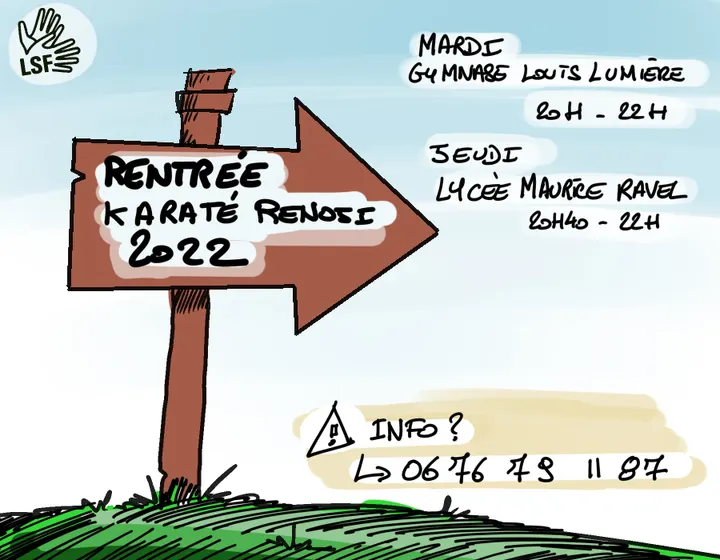 LSF
RENTRÉE
KARATÉ RENOJI
2022
MARDI
GYMNASE LOUIS LUMIÈRE
20H - 22H
JEUDI
LYCÉE MAURICE RAVEL
20H40 - 22H
!!
INFO ?
↳ 06 76 79 11 87